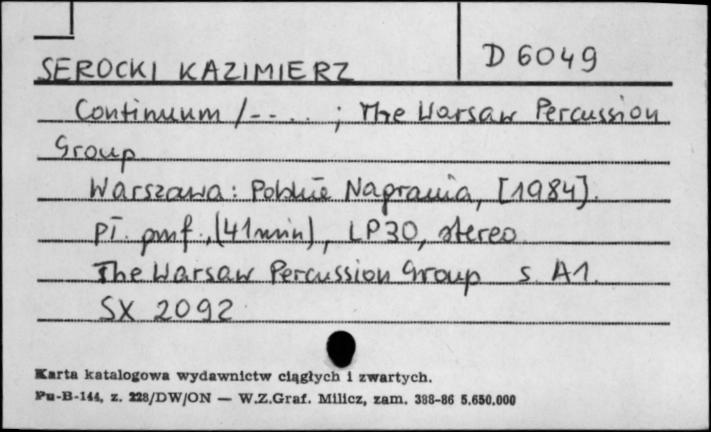 D 6049
SEROCKI KAZIMIERZ
Continuum /-- . . . ; The Warsaw Percussion
Group
Warszawa: Polskie Nagrania, [1984].
pł. gmf., (41 min), LP30, stereo
The Warsaw Percussion Group s. A1.
SX 2092
Karta katalogowa wydawnictw ciągłych i zwartych.
Pu-B-144, z. 228/DW/ON — W.Z.Graf. Milicz, zam. 388-86 5.650.000